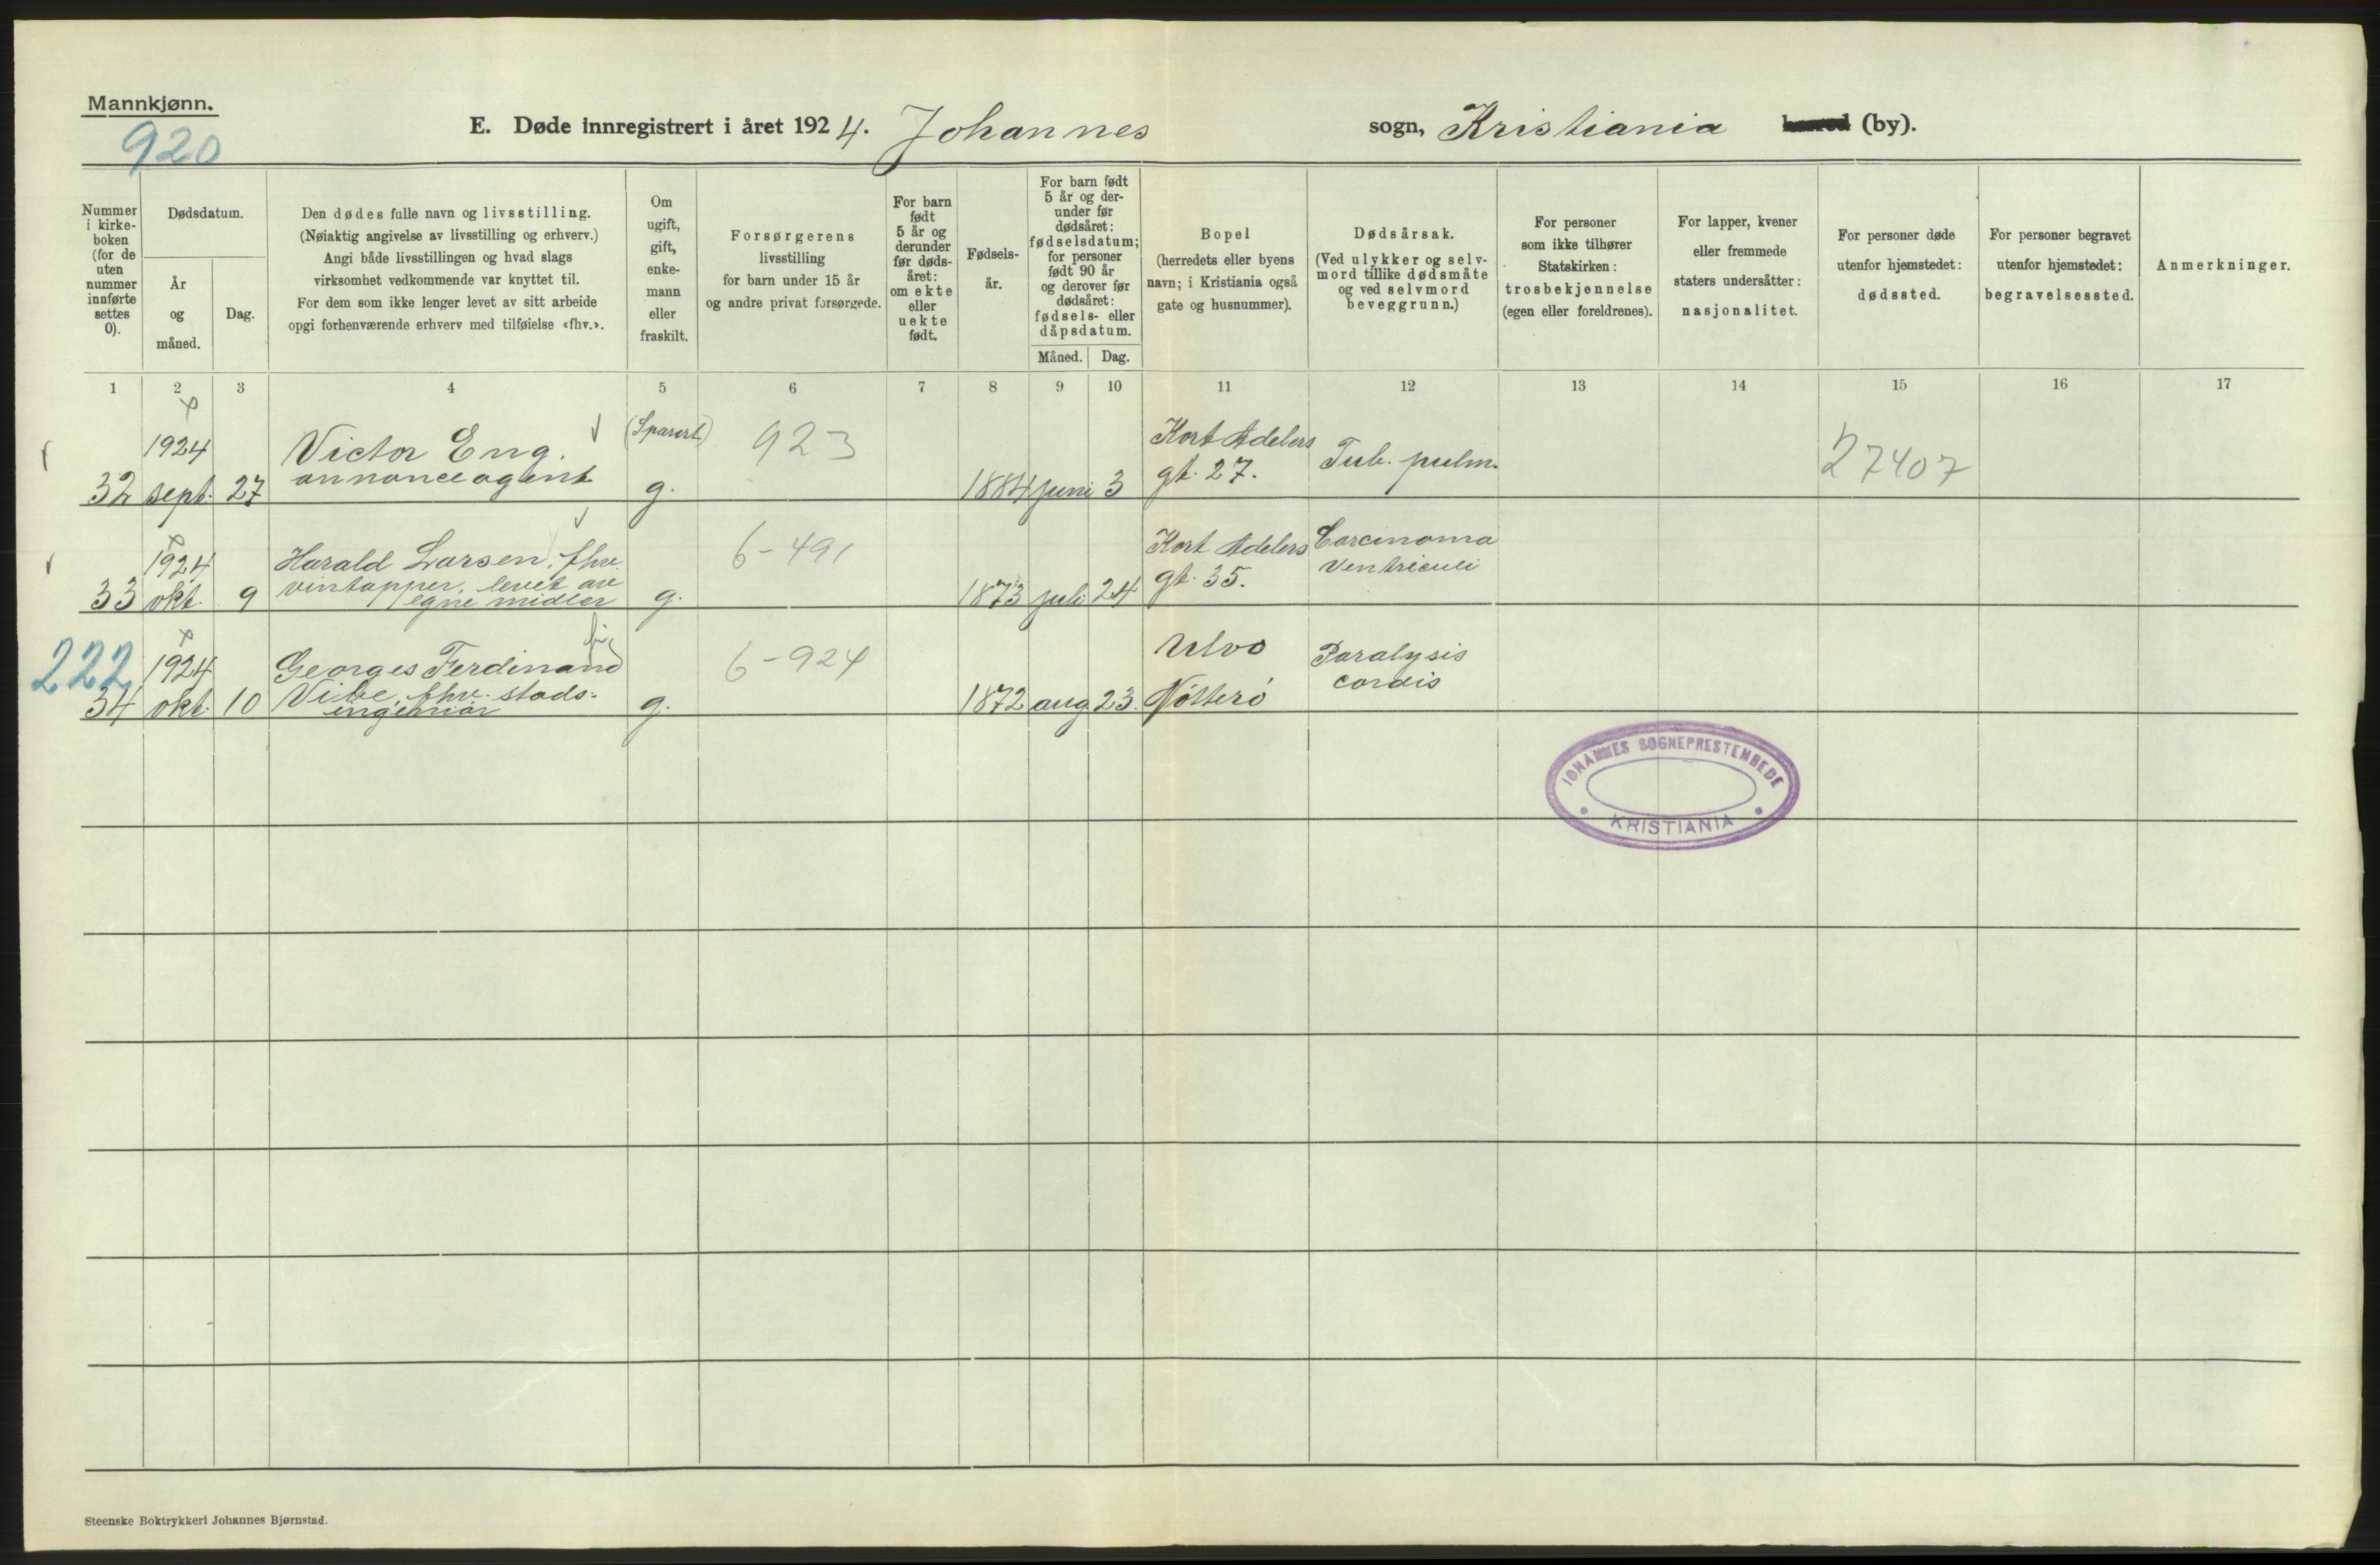 Mannkjønn.
920
E. Døde innregistrert i året 1924. Johannes sogn, Kristiania (by).
Nummer
i kirke-
boken
(for de
uten
nummer
innførte
settes
0).
Dødsdatum.
År
og
måned.
Dag.
Den dødes fulle navn og livsstilling.
(Nøiaktig angivelse av livsstilling og erhverv.)
Angi både livsstillingen og hvad slags
virksomhet vedkommende var knyttet til.
For dem som ikke lenger levet av sitt arbeide
opgi forhenværende erhverv med tilføielse «fhv.».
Om
ugift,
gift,
enke-
mann
eller
fraskilt.
Forsørgerens
livsstilling
for barn under 15 år
og andre privat forsørgede.
For barn
født
5 år og
derunder
før døds-
året:
om ekte
eller
uekte
født.
Fødsels-
år.
For barn født
5 år og der-
under før
dødsåret:
fødselsdatum;
for personer
født 90 år
og derover før
dødsåret:
fødsels- eller
dåpsdatum.
Måned. Dag.
Bopel
(herredets eller byens
navn; i Kristiania også
gate og husnummer).
Dødsårsak.
(Ved ulykker og selv-
mord tillike dødsmåte
og ved selvmord
beveggrunn.)
For personer
som ikke tilhører
Statskirken:
trosbekjennelse
(egen eller foreldrenes).
For lapper, kvener
eller fremmede
staters undersåtter:
nasjonalitet.
For personer døde
utenfor hjemstedet:
dødssted.
For personer begravet
utenfor hjemstedet:
begravelsessted.
Anmerkninger.
1 2 3 4 5 6 7 8 9 10 11 12 13 14 15 16 17
32
1924
sept. 27
Victor Eng.
annonceagent
g.
923
1884 juni 3
Kort Adelers
gt. 27.
Tub. pulm.
27407
33
1924
okt. 9
Harald Larsen, fhv.
vintapper, levet av
egne midler
g.
6-491
1873 juli 24
Kort Adelers
gt. 35.
Carcinoma
ventriculi
222
34
1924
okt. 10
Georges Ferdinand
Vibe, fhv. stads-
ingeniør
g.
6-924
1872 aug 23.
Ulvø
Nøtterø
Paralysis
cordis
JOHANNES SOGNEPRESTEMBEDE
KRISTIANIA
Steenske Boktrykkeri Johannes Bjørnstad.